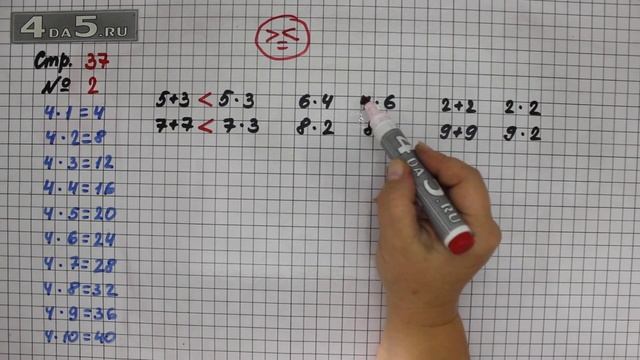 4DA5.RU
Стр. 37
№ 2
> < =
4·1=4
4·2=8
4·3=12
4·4=16
4·5=20
4·6=24
4·7=28
4·8=32
4·9=36
4·10=40
5+3 < 5·3
7+7 < 7·3
6·4 ·6
8·2
2+2 2·2
9+9 9·2
4DA5.RU